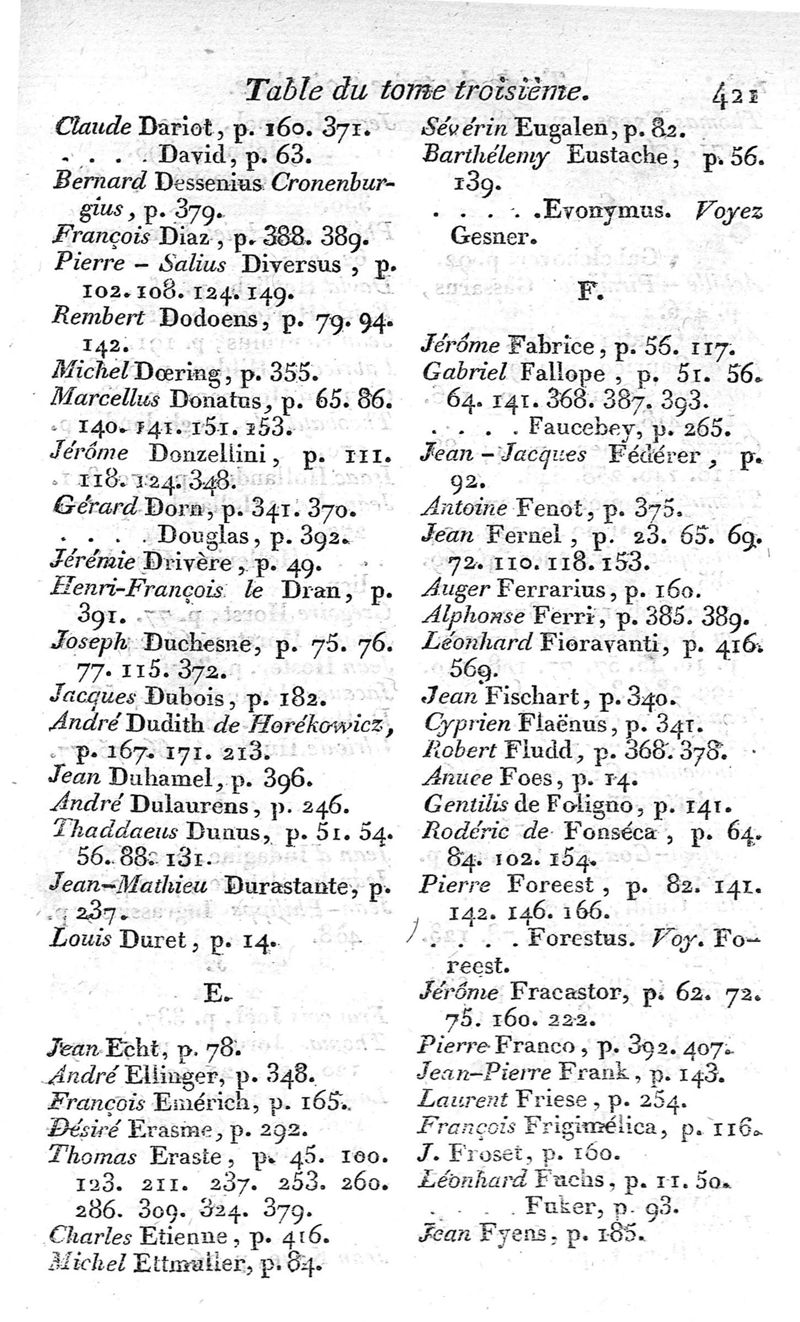 Table du tome troisième. 421
Claude Dariot, p. 160. 371.
. . . . David, p. 63.
Bernard Dessenius Cronenbur-
gius, p. 379.
François Diaz, p. 388. 389.
Pierre - Salius Diversus, p.
102. 108. 124. 149.
Rembert Dodoens, p. 79. 94.
142.
Michel Dœring, p. 355.
Marcellus Donatus, p. 65. 86.
140. 141. 151. 153.
Jérôme Donzellini, p. 111.
118. 124. 348.
Gérard Dorn, p. 341. 370.
. . . . Douglas, p. 392.
Jérémie Drivère, p. 49.
Henri-François le Dran, p.
391.
Joseph Duchesne, p. 75. 76.
77. 115. 372.
Jacques Dubois, p. 182.
André Dudith de Horékowicz,
p. 167. 171. 213.
Jean Duhamel, p. 396.
André Dulaurens, p. 246.
Thaddaeus Dunus, p. 51. 54.
56. 88. 131.
Jean-Mathieu Durastante, p.
237.
Louis Duret, p. 14.
E.
Jean Echt, p. 78.
André Ellinger, p. 348.
François Emérich, p. 165.
Désiré Erasme, p. 292.
Thomas Eraste, p. 45. 100.
123. 211. 237. 253. 260.
286. 309. 324. 379.
Charles Etienne, p. 416.
Michel Ettmuller, p. 84.
Sévérin Eugalen, p. 82.
Barthélemy Eustache, p. 56.
139.
. . . . . Evonymus. Voyez
Gesner.
F.
Jérôme Fabrice, p. 56. 117.
Gabriel Fallope, p. 51. 56.
64. 141. 368. 387. 393.
. . . . Faucebey, p. 265.
Jean - Jacques Fédérer, p.
92.
Antoine Fenot, p. 375.
Jean Fernel, p. 23. 65. 69.
72. 110. 118. 153.
Auger Ferrarius, p. 160.
Alphonse Ferri, p. 385. 389.
Léonhard Fioravanti, p. 416.
569.
Jean Fischart, p. 340.
Cyprien Flaënus, p. 341.
Robert Fludd, p. 368. 378.
Anuce Foes, p. 14.
Gentilis de Foligno, p. 141.
Rodéric de Fonséca, p. 64.
84. 102. 154.
Pierre Foreest, p. 82. 141.
142. 146. 166.
. . . . Forestus. Voy. Fo-
reest.
Jérôme Fracastor, p. 62. 72.
75. 160. 222.
Pierre Franco, p. 392. 407.
Jean-Pierre Frank, p. 143.
Laurent Friese, p. 254.
François Frigimélica, p. 116.
J. Froset, p. 160.
Léonhard Fuchs, p. 11. 50.
. . . . Fuker, p. 93.
Jean Fyens, p. 185.